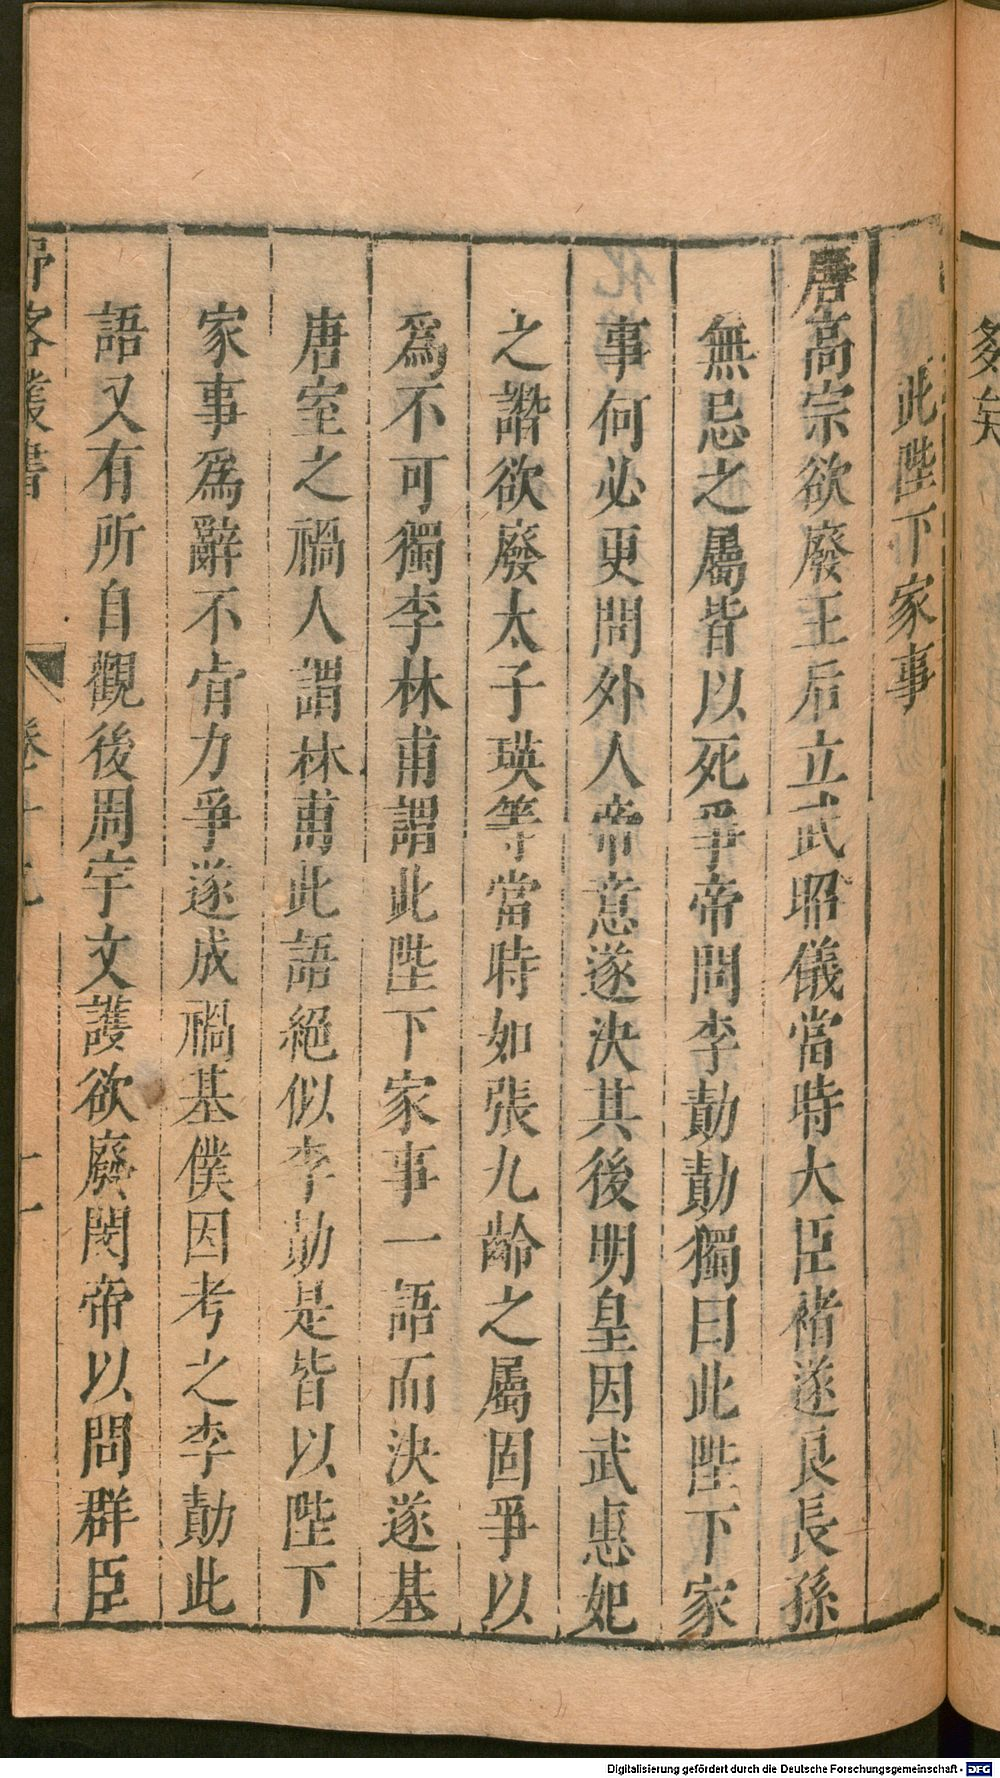 此陛下家事
唐高宗欲廢王后立武昭儀當時大臣褚遂良長孫
無忌之屬皆以死爭帝問李勣勣獨曰此陛下家
事何必更問外人帝意遂決其後明皇因武惠妃
之譖欲廢太子瑛等當時如張九齡之屬固爭以
爲不可獨李林甫謂此陛下家事一語而決遂基
唐室之禍人謂林甫此語絕似李勣是皆以陛下
家事爲辭不肯力爭遂成禍基僕因考之李勣此
語又有所自觀後周宇文護欲廢閔帝以問群臣
野客叢書
卷十九
Digitalisierung gefördert durch die Deutsche Forschungsgemeinschaft - DFG